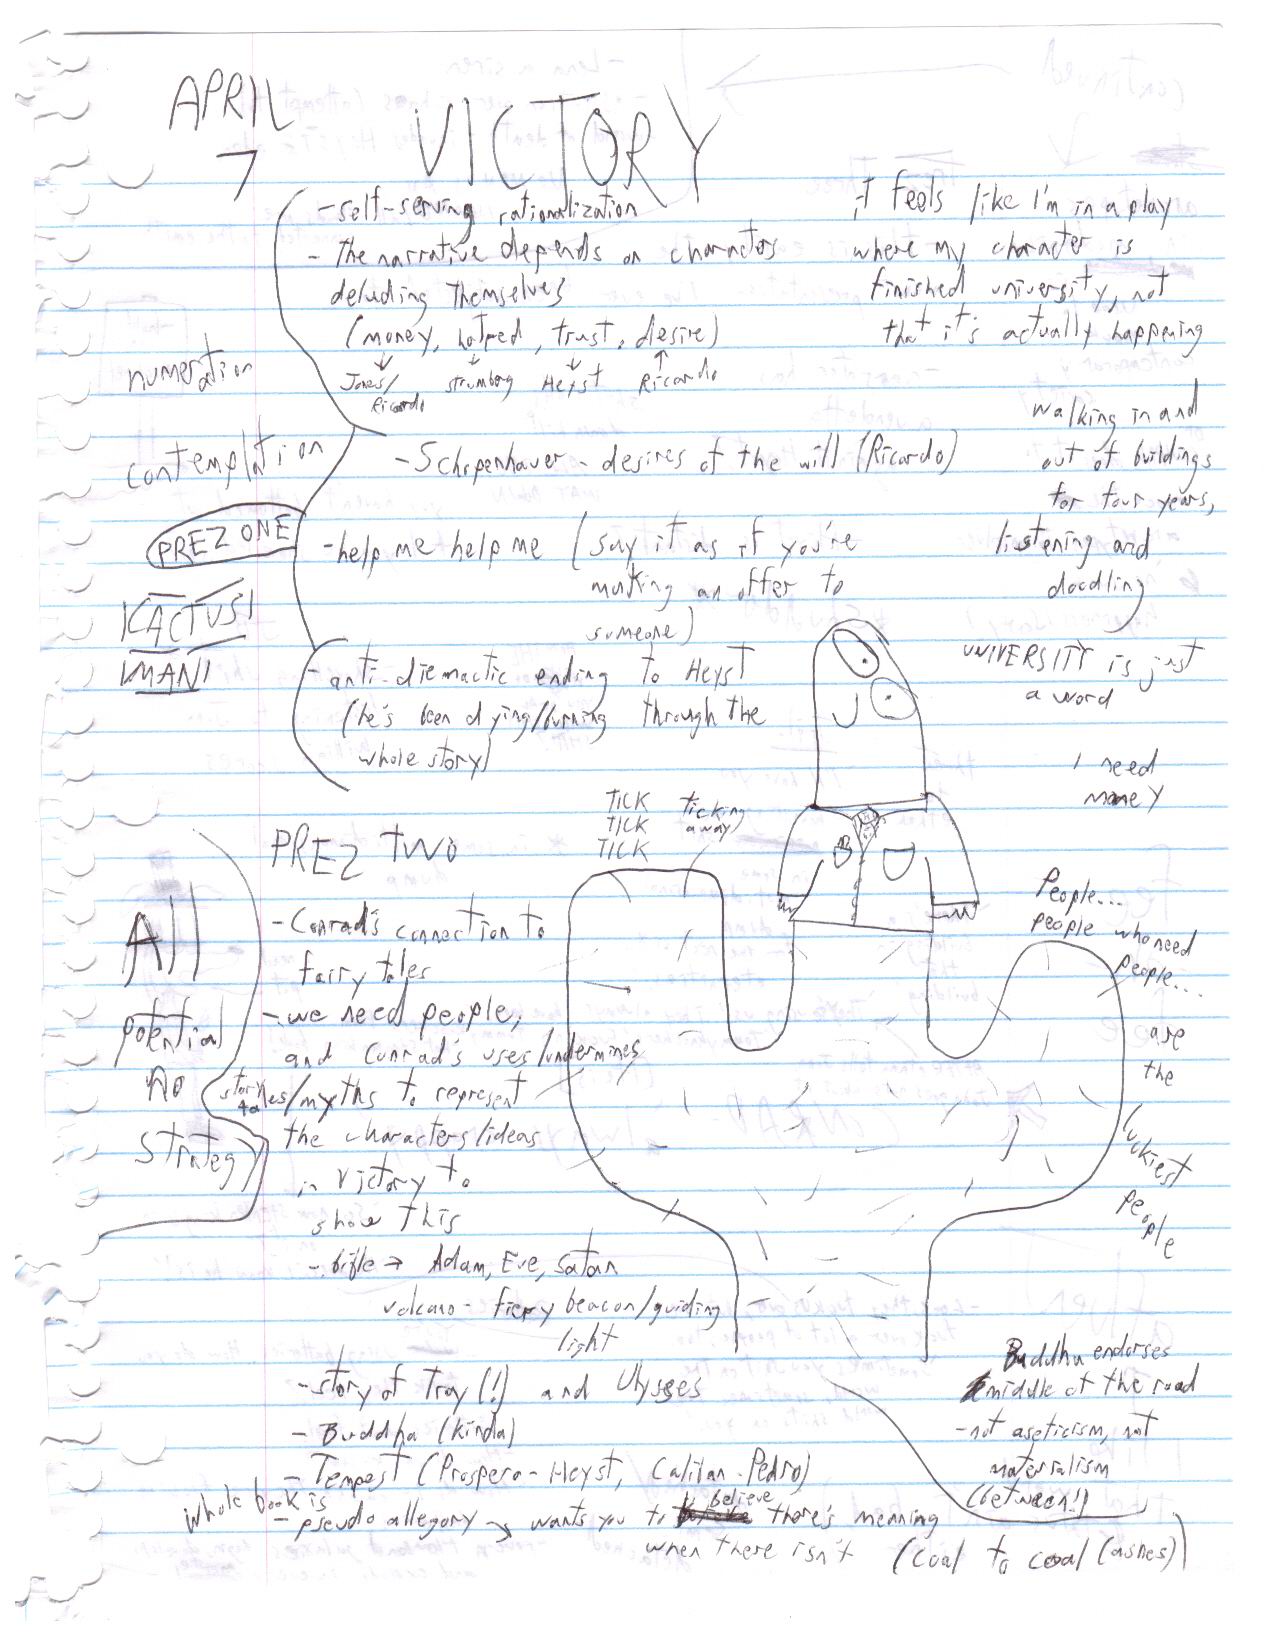 APRIL
7
VICTORY
- self-serving rationalization
- the narrative depends on characters
deluding themselves
(money, hatred, trust, desire)
Jones/
Ricardo
Heyst
Ricardo
numeration
contemplation
- Schopenhauer - desires of the will (Ricardo)
PREZ ONE
- help me help me (say it as if you're
making an offer to
someone)
KACTUS!
MAN!
- anti-climactic ending to Heyst
(he's been dying/burning through the
whole story)
it feels like I'm in a play
where my character is
finished university, not
that it's actually happening
walking in and
out of buildings
for four years,
listening and
doodling
UNIVERSITY is just
a word
I need
money
TICK
TICK
TICK
ticking
away
People...
people who need
people...
are
the
luckiest
people
All
potential
no
strategy
PREZ TWO
- Conrad's connection to
fairy tales
- we need people,
and Conrad's uses/undermines
story
tales/myths to represent
the characters/ideas
in Victory to
show this
- bible → Adam, Eve, Satan
volcano - fiery beacon/guiding
light
- story of Troy (!) and Ulysses
- Buddha (kinda)
- Tempest (Prospero - Heyst, Caliban - Pedro)
whole book is
- pseudo allegory → wants you to believe there's meaning
when there isn't (coal to coal (ashes))
Buddha endorses
middle of the road
- not aseticism, not
materialism
(between!)